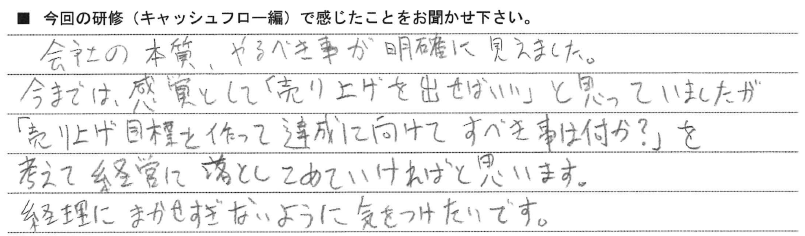 ■ 今回の研修（キャッシュフロー編）で感じたことをお聞かせ下さい。
会社の本質、やるべき事が明確に見えました。
今までは、感覚として「売り上げを出せばいい」と思っていましたが
「売り上げ目標を作って達成に向けてすべき事は何か？」を
考えて経営に落としてめていければと思います。
経理にまかせすぎないように気をつけたいです。